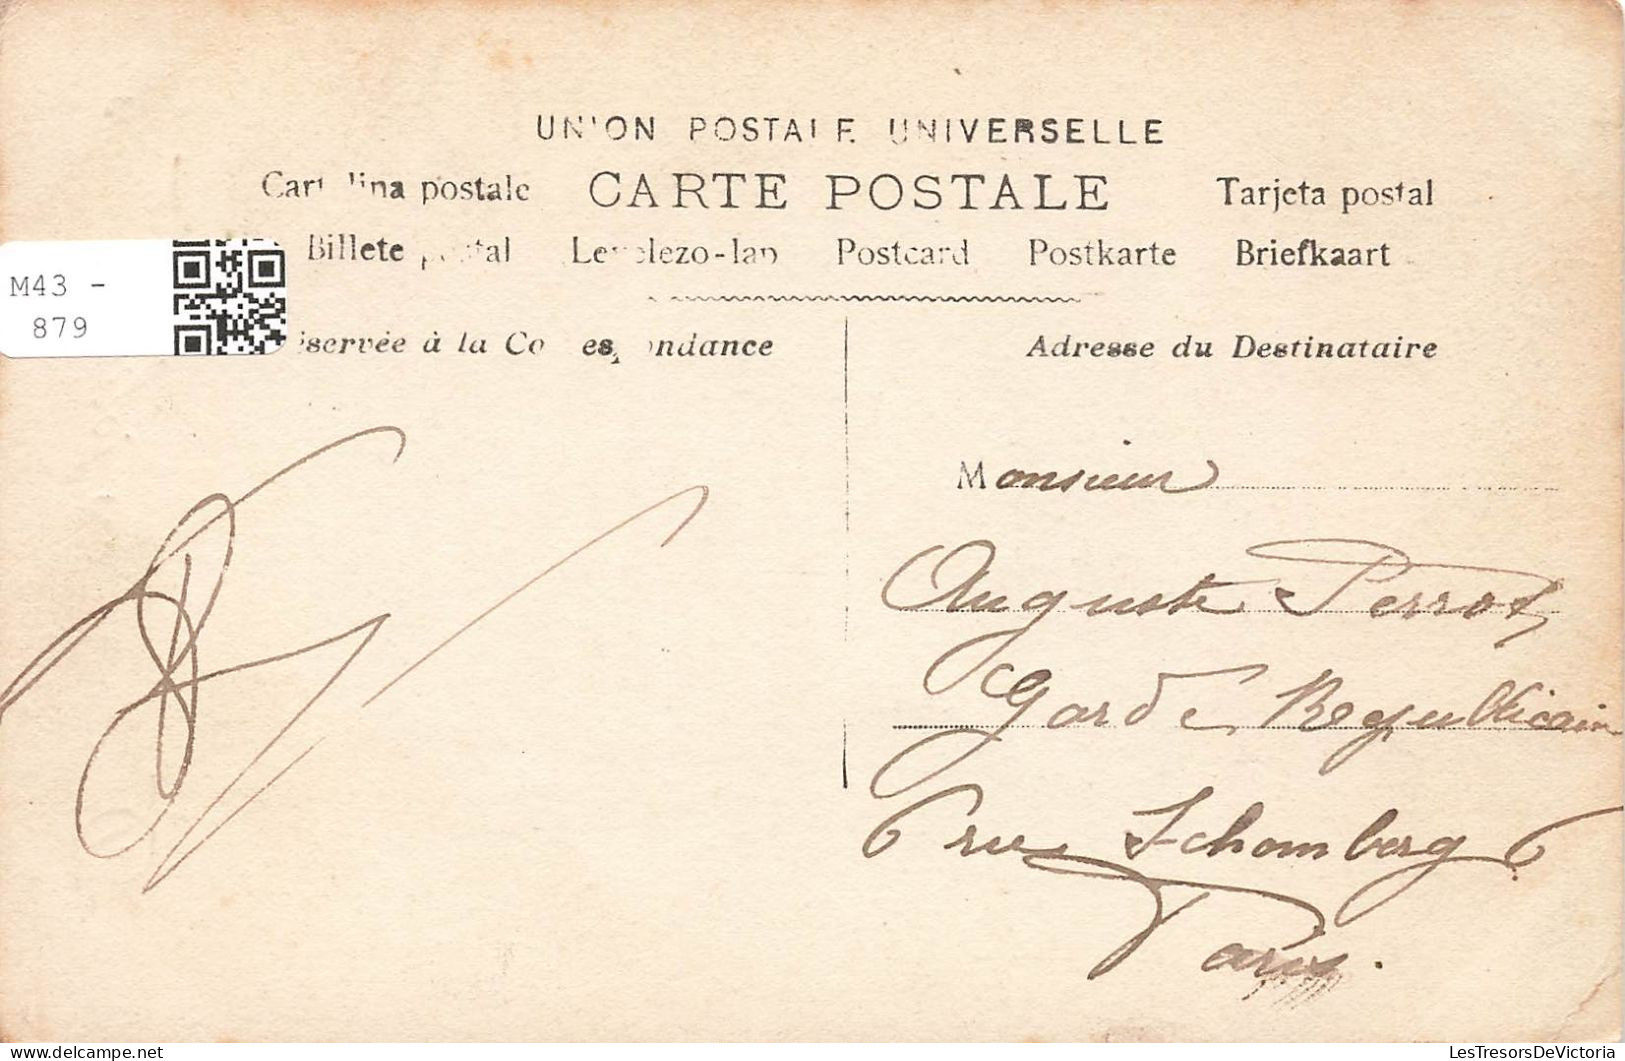 UNION POSTALE UNIVERSELLE
Cartolina postale CARTE POSTALE Tarjeta postal
Billete postal Levelezo-lap Postcard Postkarte Briefkaart
M43 -
879
éservée à la Correspondance Adresse du Destinataire
Monsieur
Auguste Perrot
Garde Republicain
6 rue Schomberg 6
Paris.
LesTresorsDeVictoria